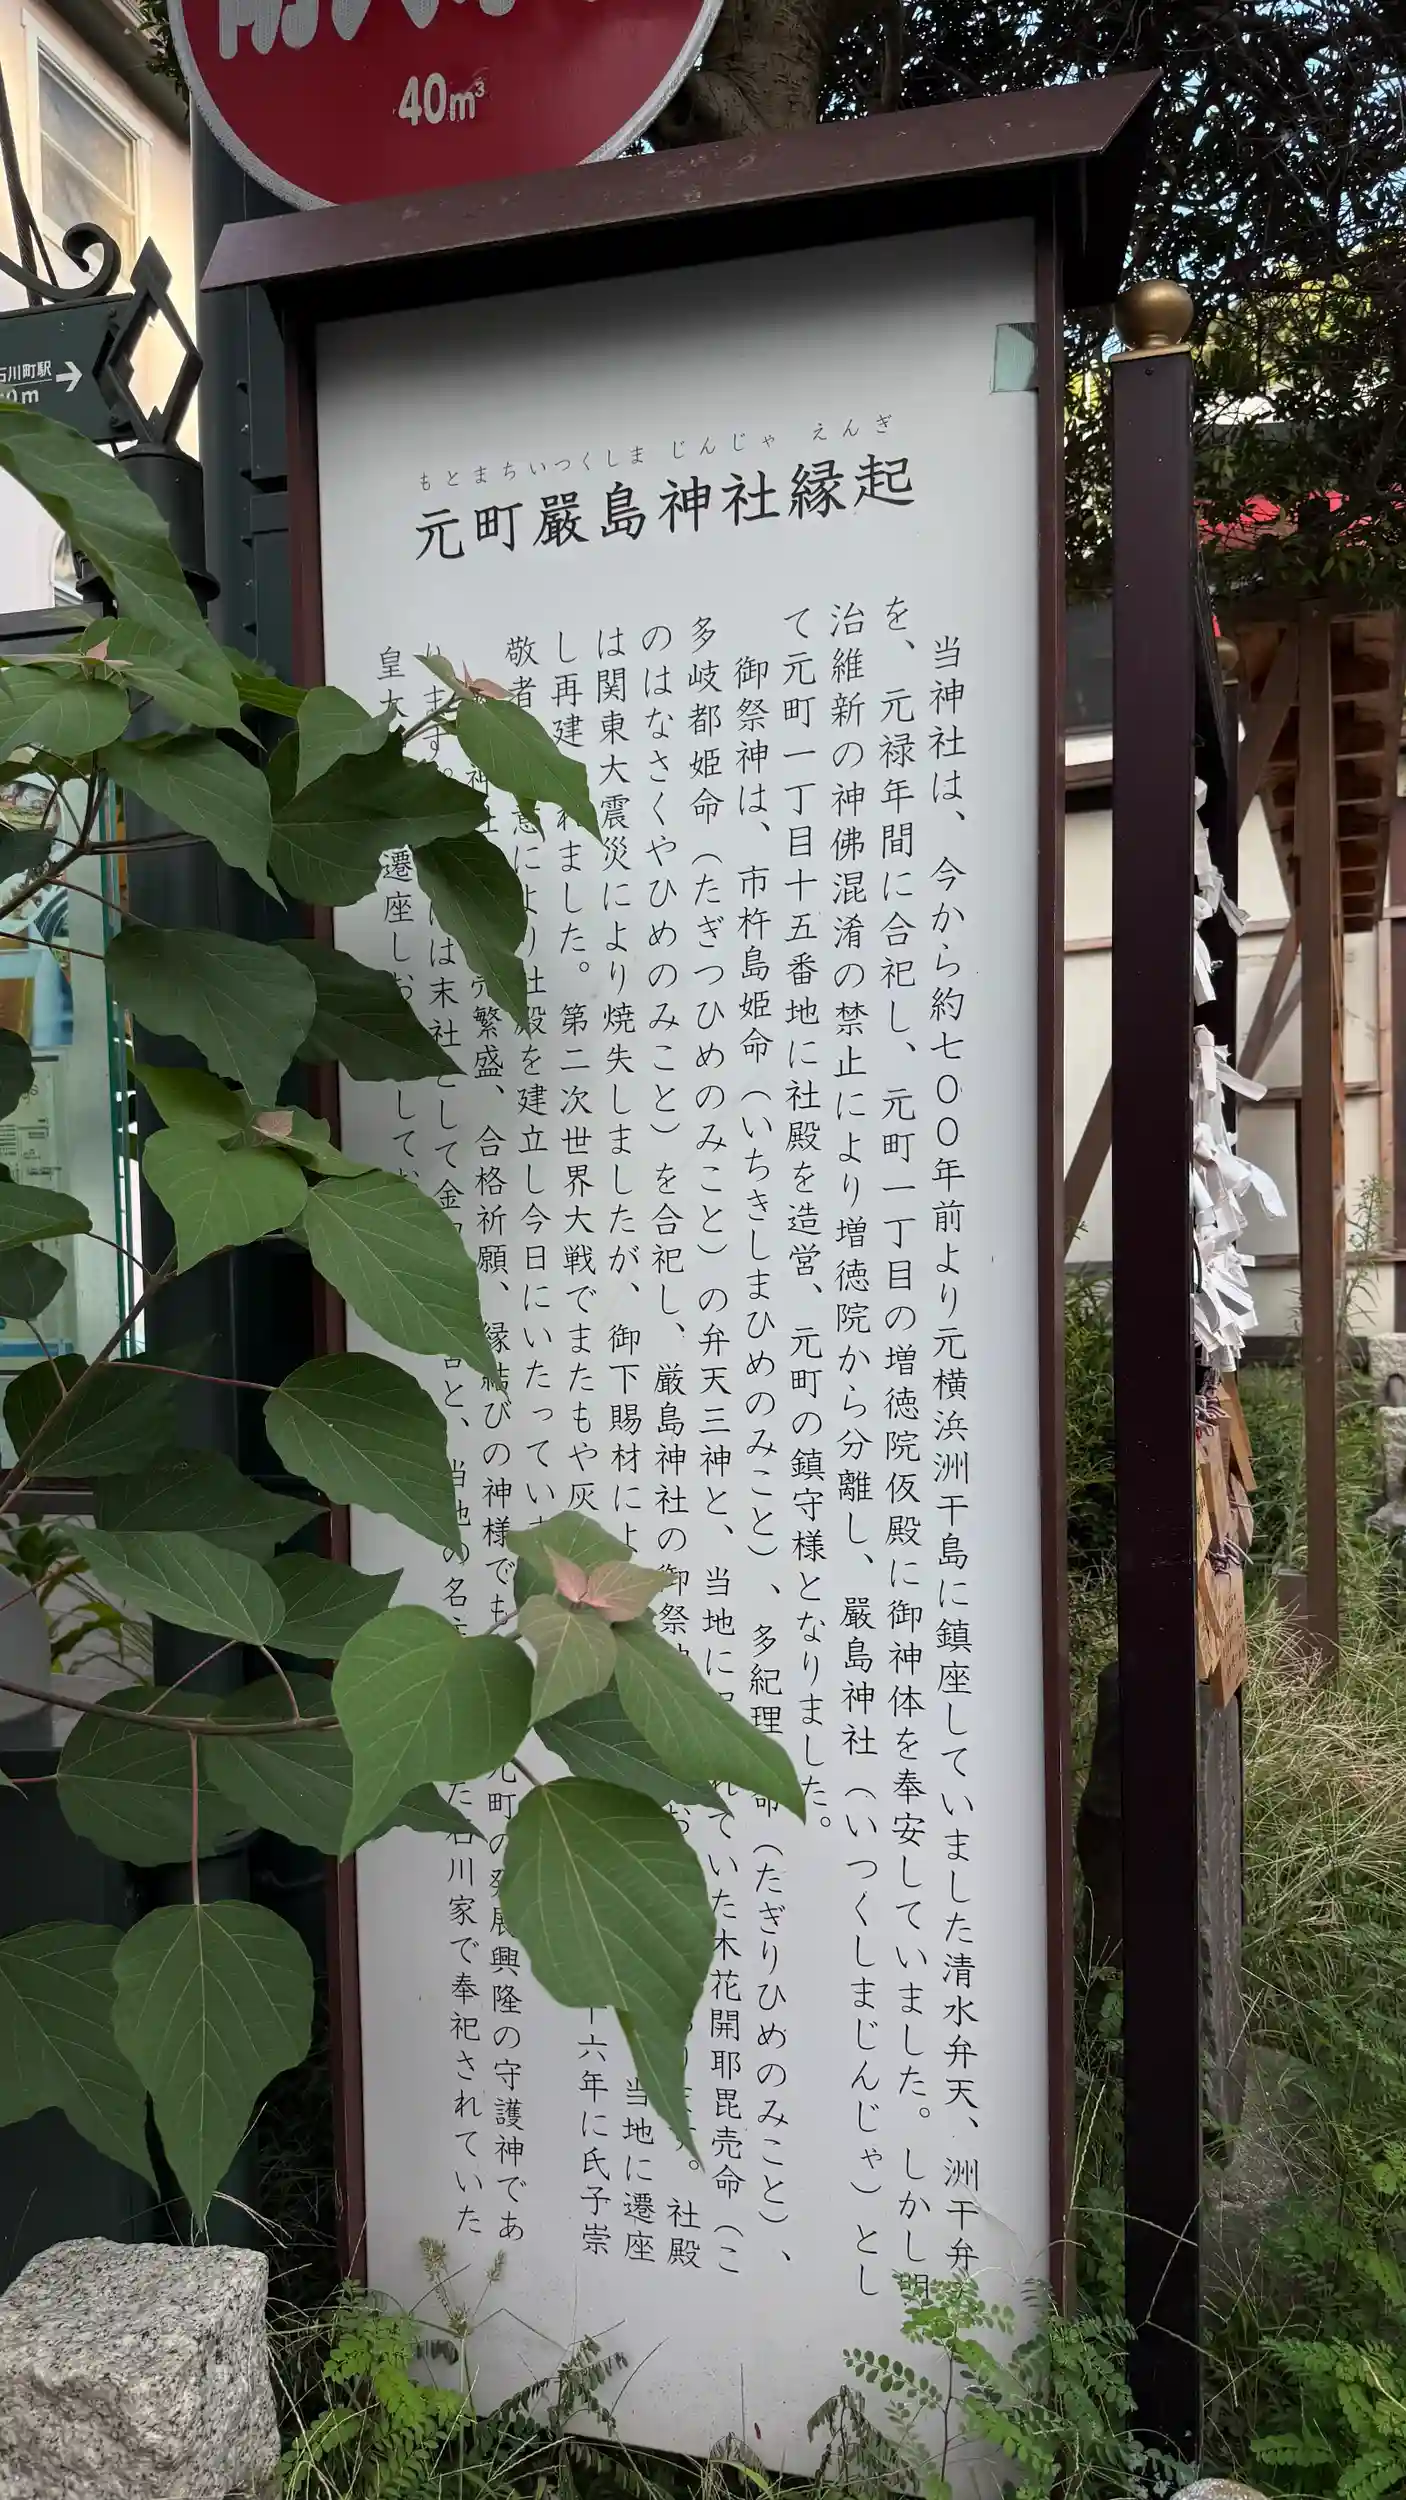 40m³
石川町駅
もとまちいつくしま じんじゃ えんぎ
元町嚴島神社縁起
当神社は、今から約七〇〇年前より元横浜洲干島に鎮座していました清水弁天、洲干弁
を、元禄年間に合祀し、元町一丁目の増徳院仮殿に御神体を奉安していました。しかし明
治維新の神佛混淆の禁止により増徳院から分離し、嚴島神社（いつくしまじんじゃ）とし
て元町一丁目十五番地に社殿を造営、元町の鎮守様となりました。
御祭神は、市杵島姫命（いちきしまひめのみこと）、多紀理 命（たぎりひめのみこと）、
多岐都姫命（たぎつひめのみこと）の弁天三神と、当地に れていた木花開耶毘売命（こ
のはなさくやひめのみこと）を合祀し、厳島神社の御祭 お ります。社殿
は関東大震災により焼失しましたが、御下賜材によ 当地に遷座
し再建 れました。第二次世界大戦でまたもや灰 十六年に氏子崇
敬者 意により社殿を建立し今日にいたってい
神社 繁盛、合格祈願、縁結びの神様でも 元町の発展興隆の守護神であ
ります。 には末社として金 と、当地の名 た石川家で奉祀されていた
皇大 遷座しお して